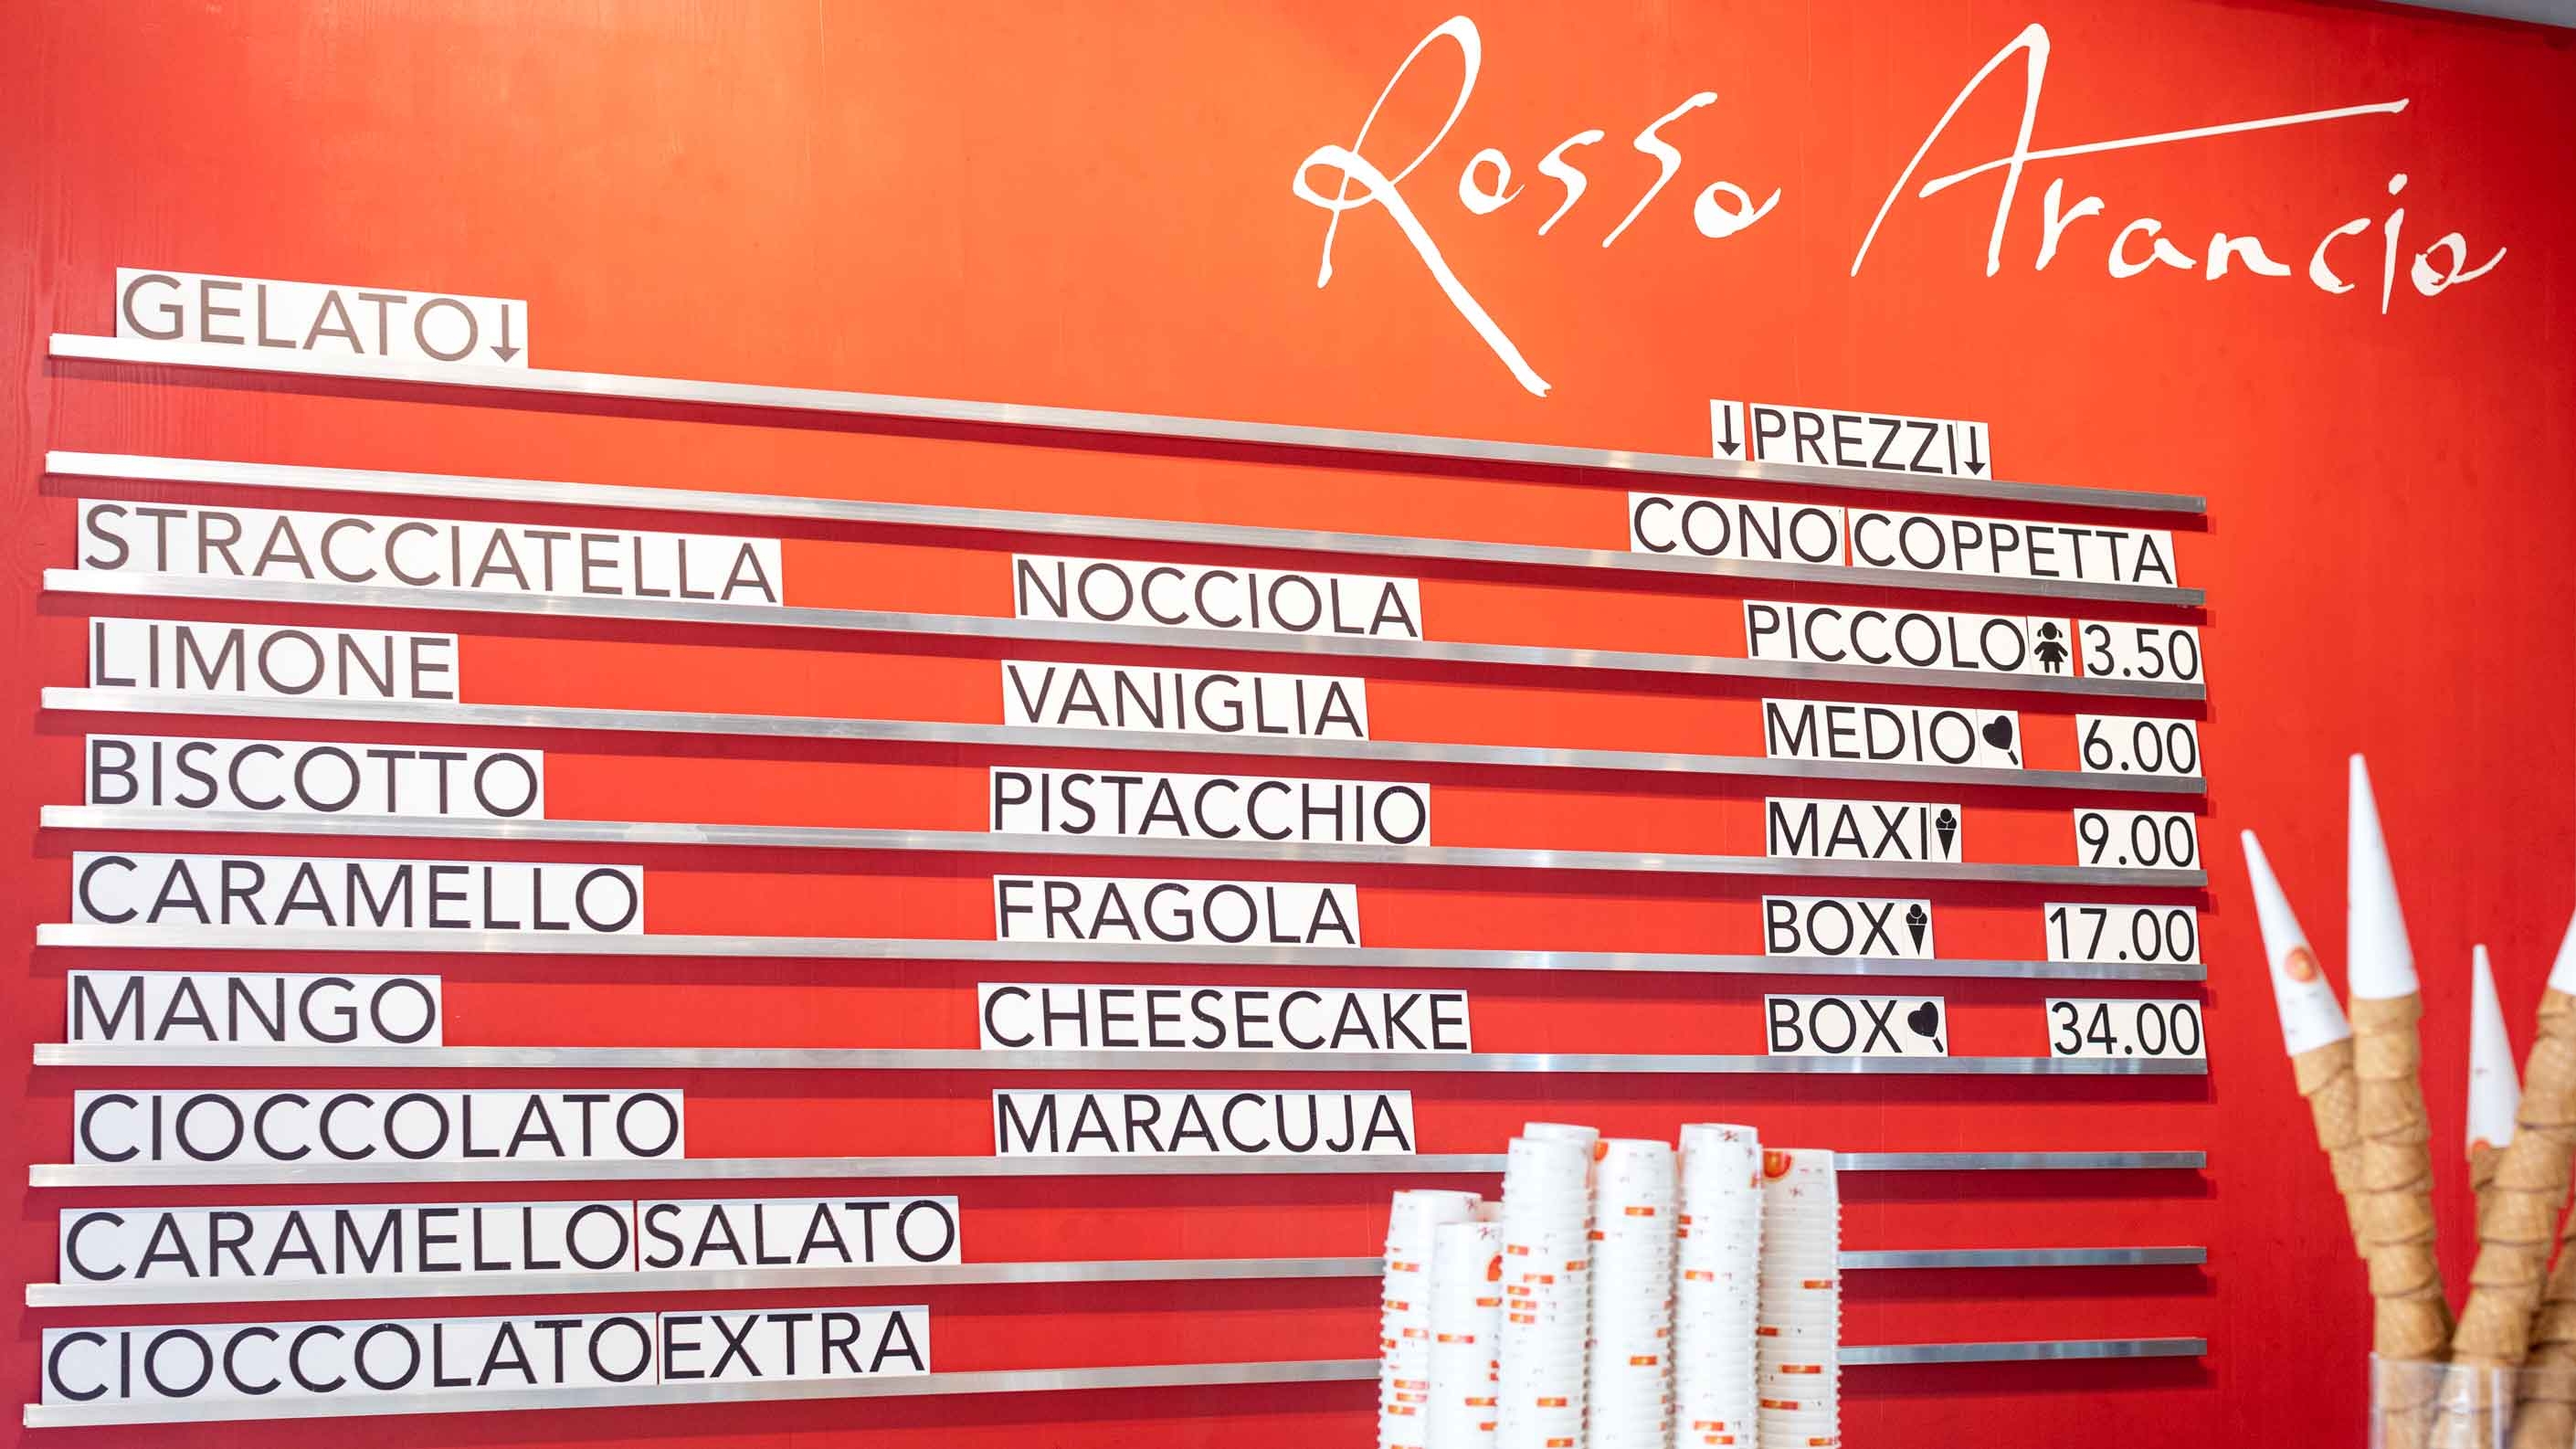 Rosso Arancio
GELATO↓
STRACCIATELLA
LIMONE
BISCOTTO
CARAMELLO
MANGO
CIOCCOLATO
CARAMELLO SALATO
CIOCCOLATO EXTRA
NOCCIOLA
VANIGLIA
PISTACCHIO
FRAGOLA
CHEESECAKE
MARACUJA
↓PREZZI↓
CONO COPPETTA
PICCOLO 3.50
MEDIO 6.00
MAXI 9.00
BOX 17.00
BOX 34.00